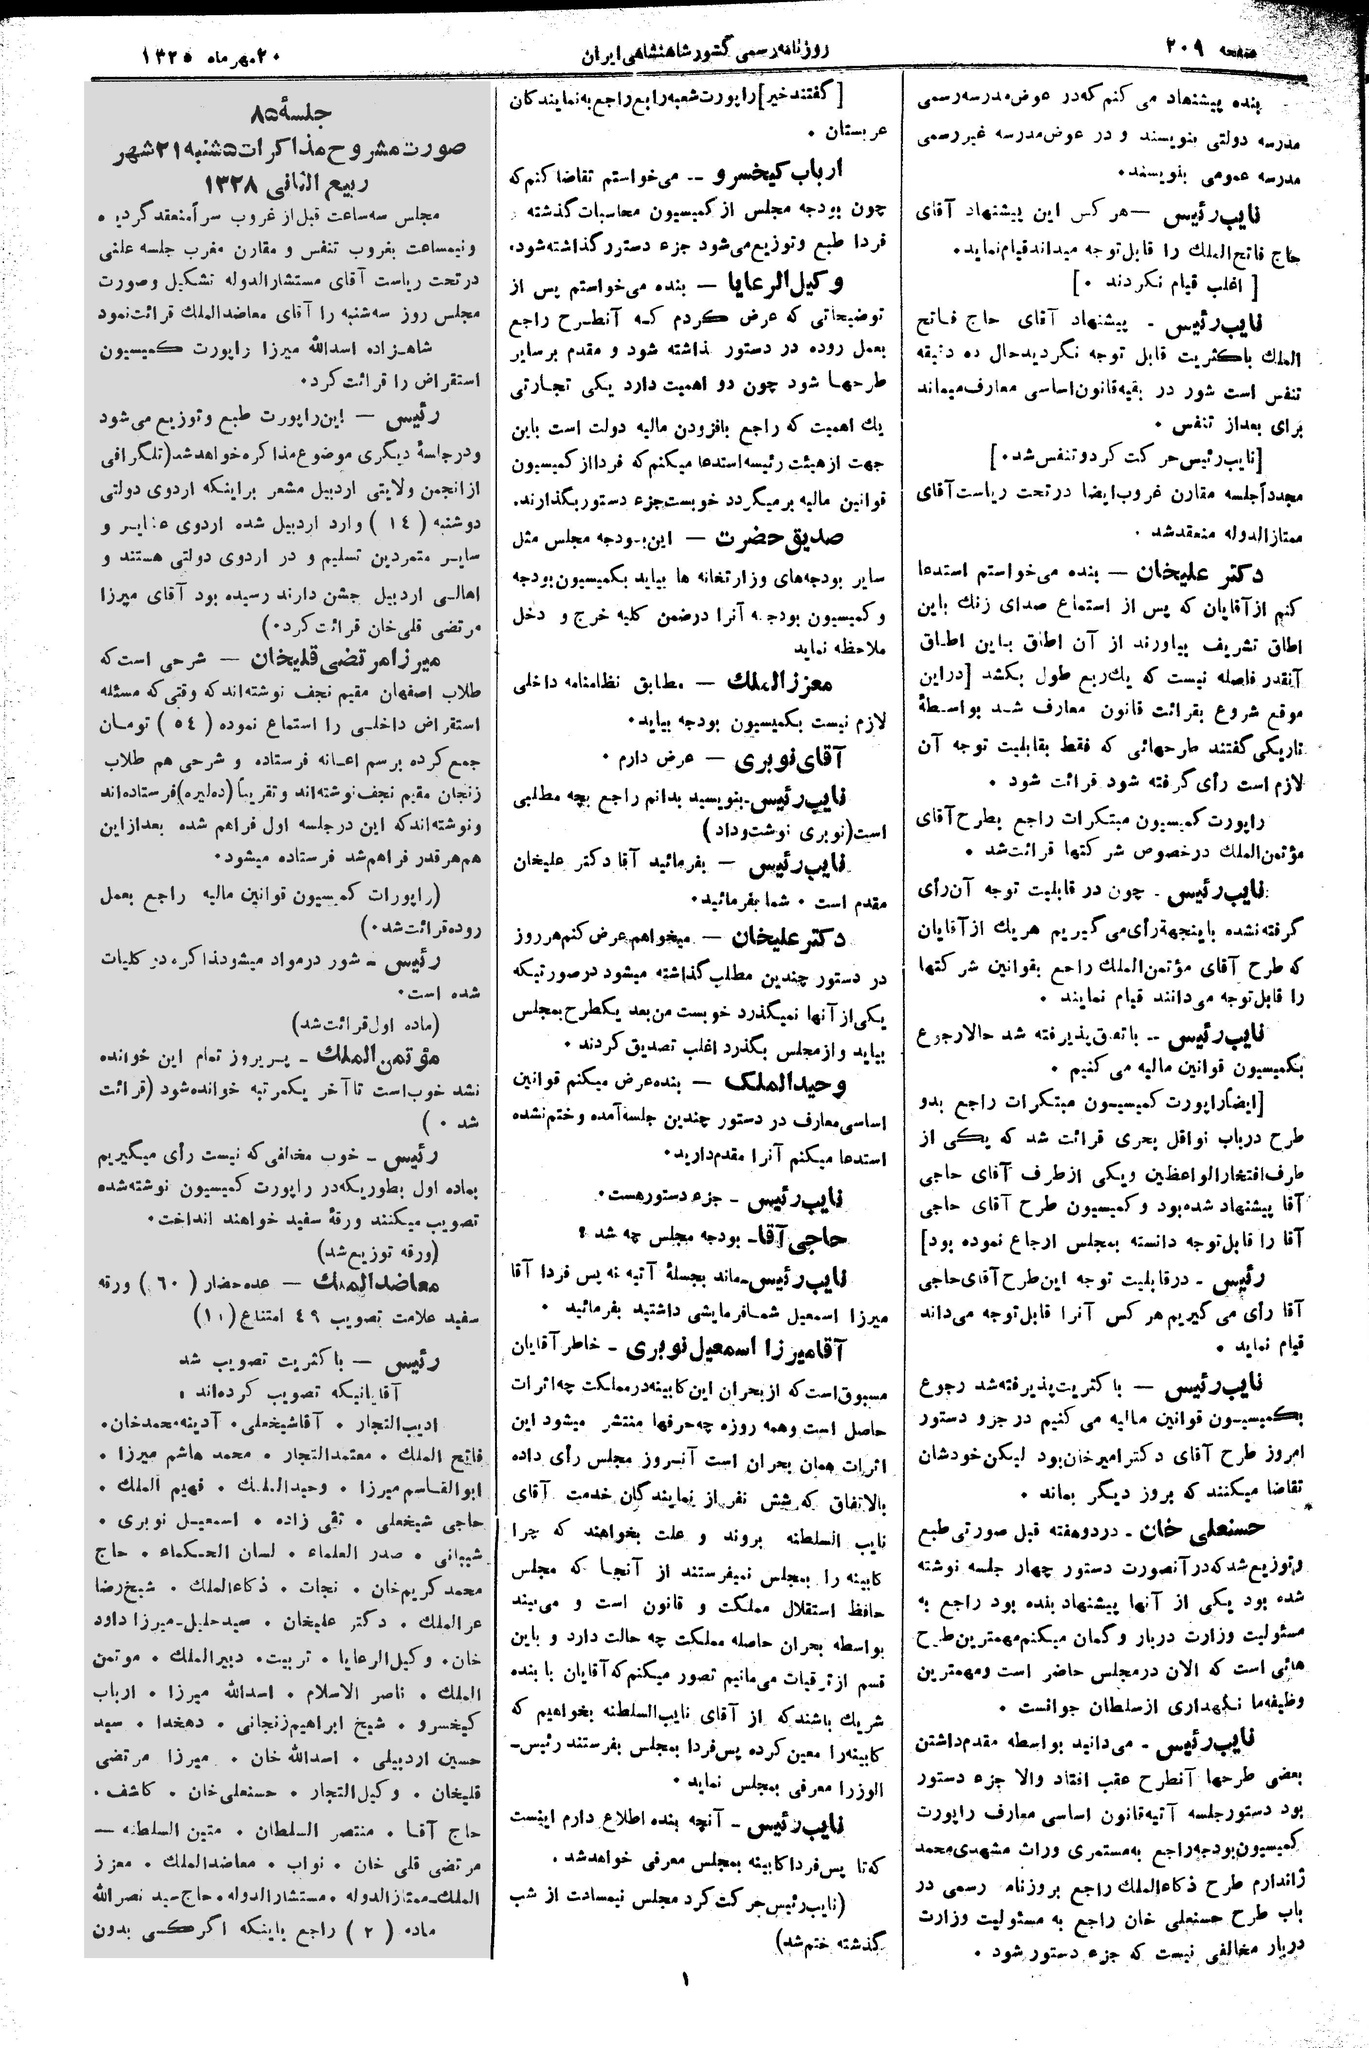 صفحه ۲۰۹
روزنامه رسمی کشور شاهنشاهی ایران
۲۰ مهر ماه ۱۳۲۵
بنده پیشنهاد می کنم که در عوض مدرسه رسمی
مدرسه دولتی بنویسند و در عوض مدرسه غیر رسمی
مدرسه عمومی بنویسند.
نایب رئیس — هر کس این پیشنهاد آقای
حاج فاتح الملک را قابل توجه میداند قیام نماید.
[ اغلب قیام نکردند . ]
نایب رئیس - پیشنهاد آقای حاج فاتح
الملک باکثریت قابل توجه نگردید حال ده دقیقه
تنفس است شور در بقیه قانون اساسی معارف میماند
برای بعد از تنفس .
[نایب رئیس حرکت کرد و تنفس شد.]
مجدداً جلسه مقارن غروب ایضا در تحت ریاست آقای
ممتاز الدوله منعقد شد .
دکتر علیخان — بنده می خواستم استدعا
کنم از آقایان که پس از استماع صدای زنک باین
اطاق تشریف بیاورند از آن اطاق باین اطاق
آنقدر فاصله نیست که یک ربع طول بکشد [در این
موقع شروع بقرائت قانون معارف شد بواسطهٔ
تاریکی گفتند طرحهائی که فقط بقابلیت توجه آن
لازم است رأی گرفته شود قرائت شود .
راپورت کمیسیون مبتکرات راجع بطرح آقای
مؤتمن الملک در خصوص شرکتها قرائت شد .
نایب رئیس - چون در قابلیت توجه آن رأی
گرفته نشده باینجهة رأی می گیریم هر یک از آقایان
که طرح آقای مؤتمن الملک راجع بقوانین شرکتها
را قابل توجه می دانند قیام نمایند .
نایب رئیس -- باتفق پذیرفته شد حالا رجوع
بکمیسیون قوانین مالیه می کنیم .
[ایضاً راپورت کمیسیون مبتکرات راجع بدو
طرح در باب نواقل بحری قرائت شد که یکی از
طرف افتخار الواعظین و یکی از طرف آقای حاجی
آقا پیشنهاد شده بود و کمیسیون طرح آقای حاجی
آقا را قابل توجه دانسته بمجلس ارجاع نموده بود]
رئیس - در قابلیت توجه این طرح آقای حاجی
آقا رأی می گیریم هر کس آنرا قابل توجه می داند
قیام نماید .
نایب رئیس — باکثریت پذیرفته شد رجوع
بکمیسیون قوانین مالیه می کنیم در جزو دستور
امروز طرح آقای دکتر امیرخان بود لیکن خودشان
تقاضا میکنند که بروز دیگر بماند .
حسنعلی خان - در دو هفته قبل صورتی طبع
و توزیع شد که در آنصورت دستور چهار جلسه نوشته
شده بود یکی از آنها پیشنهاد بنده بود راجع به
مسئولیت وزارت دربار و گمان میکنم مهمترین طرح
هائی است که الان در مجلس حاضر است و مهمترین
وظیفه ما نگهداری از سلطان جوانست .
نایب رئیس - می دانید بواسطه مقدم داشتن
بعضی طرحها آنطرح عقب افتاد والا جزء دستور
بود دستور جلسه آتیه قانون اساسی معارف راپورت
کمیسیون بودجه راجع به مستمری وراث مشهدی محمد
ژاندارم طرح ذکاء الملک راجع بروزنامه رسمی در
باب طرح حسنعلی خان راجع به مسئولیت وزارت
دربار مخالفی نیست که جزء دستور شود .
[گفتند خیر] راپورت شعبه رابع راجع به نمایندگان
عربستان .
ارباب کیخسرو -- می خواستم تقاضا کنم که
چون بودجه مجلس از کمیسیون محاسبات گذشته و
فردا طبع و توزیع می شود جزء دستور گذاشته شود.
وکیل الرعایا — بنده می خواستم پس از
توضیحاتی که عرض کردم که آنطرح راجع
بعمل روده در دستور ذاشته شود و مقدم بر سایر
طرحها شود چون دو اهمیت دارد یکی تجارتی
یک اهمیت که راجع بافزودن مالیه دولت است باین
جهت از هیئت رئیسه استدعا میکنم که فردا از کمیسیون
قوانین مالیه بر میگردد خوبست جزء دستور بگذارند.
صدیق حضرت — این بودجه مجلس مثل
سایر بودجه های وزارتخانه ها بیاید بکمیسیون بودجه
و کمیسیون بودجه آنرا در ضمن کلیه خرج و دخل
ملاحظه نماید
معزز الملک — مطابق نظامنامه داخلی
لازم نیست بکمیسیون بودجه بیاید.
آقای نوبری — عرض دارم .
نایب رئیس-بنویسید بدانم راجع بچه مطلبی
است (نوبری نوشت و داد)
نایب رئیس — بفرمائید آقا دکتر علیخان
مقدم است . شما بفرمائید.
دکتر علیخان — میخواهم عرض کنم هر روز
در دستور چندین مطلب گذاشته میشود در صورتیکه
یکی از آنها نمیگذرد خوبست من بعد یکطرح بمجلس
بیاید و از مجلس بگذرد اغلب تصدیق کردند .
وحید الملک — بنده عرض میکنم قوانین
اساسی معارف در دستور چندین جلسه آمده و ختم نشده
استدعا میکنم آنرا مقدم دارید.
نایب رئیس - جزء دستور هست.
حاجی آقا- بودجه مجلس چه شد ؟
نایب رئیس-ماند بجلسهٔ آتیه نه پس فردا آقا
میرزا اسمعیل شما فرمایشی داشتید بفرمائید .
آقا میرزا اسمعیل نوبری - خاطر آقایان
مسبوق است که از بحران این کابینه در مملکت چه اثرات
حاصل است و همه روزه چه حرفها منتشر میشود این
اثرات همان بحران است آنروز مجلس رأی داده
بالاتفاق که شش نفر از نمایندگان خدمت آقای
نایب السلطنه بروند و علت بخواهند که چرا
کابینه را بمجلس نمیفرستند از آنجا که مجلس
حافظ استقلال مملکت و قانون است و می بیند
بواسطه بحران حاصله مملکت چه حالت دارد و باین
قسم از ترقیات می مانیم تصور میکنم که آقایان با بنده
شریک باشند که از آقای نایب السلطنه بخواهیم که
کابینه را معین کرده پس فردا بمجلس بفرستند رئیس-
الوزرا معرفی بمجلس نماید .
نایب رئیس - آنچه بنده اطلاع دارم اینست
که تا پس فردا کابینه بمجلس معرفی خواهد شد .
(نایب رئیس حرکت کرد مجلس نیمساعت از شب
گذشته ختم شد)
جلسهٔ ۸۵
صورت مشروح مذاکرات ۵ شنبه ۲۱ شهر
ربیع الثانی ۱۳۲۸
مجلس سه ساعت قبل از غروب سراً منعقد گردیده
و نیمساعت بغروب تنفس و مقارن مغرب جلسه علنی
در تحت ریاست آقای مستشار الدوله تشکیل و صورت
مجلس روز سه شنبه را آقای معاضد الملک قرائت نمود
شاهزاده اسدالله میرزا راپورت کمیسیون
استقراض را قرائت کرد.
رئیس — این راپورت طبع و توزیع می شود
و در جلسهٔ دیگری موضوع مذاکره خواهد شد (تلگرافی
از انجمن ولایتی اردبیل مشعر بر اینکه اردوی دولتی
دوشنبه (۱۴) وارد اردبیل شده اردوی عشایر و
سایر متمردین تسلیم و در اردوی دولتی هستند و
اهالی اردبیل جشن دارند رسیده بود آقای میرزا
مرتضی قلی خان قرائت کرد.)
میرزا مرتضی قلیخان — شرحی است که
طلاب اصفهان مقیم نجف نوشته اند که وقتی که مسئله
استقراض داخلی را استماع نموده (۵۴) تومان
جمع کرده برسم اعانه فرستاده و شرحی هم طلاب
زنجان مقیم نجف نوشته اند و تقریباً (ده لیره) فرستاده اند
و نوشته اند که این در جلسه اول فراهم شده بعد از این
هم هر قدر فراهم شد فرستاده میشود.
(راپورات کمیسیون قوانین مالیه راجع بعمل
روده قرائت شد.)
رئیس - شور در مواد میشود مذاکره در کلیات
شده است.
(ماده اول قرائت شد)
مؤتمن الملک - پریروز تمام این خوانده
نشد خوب است تا آخر یکمرتبه خوانده شود (قرائت
شد . )
رئیس - خوب مخالفی که نیست رأی میگیریم
بماده اول بطوریکه در راپورت کمیسیون نوشته شده
تصویب میکنند ورقهٔ سفید خواهند انداخت.
(ورقه توزیع شد)
معاضد الملک — عده حضار (۶۰) ورقه
سفید علامت تصویب ۴۹ امتناع (۱۱)
رئیس — باکثریت تصویب شد
آقایانیکه تصویب کرده اند :
ادیب التجار . آقا شیخعلی . آدینه محمد خان .
فاتح الملک . معتمد التجار . محمد هاشم میرزا .
ابوالقاسم میرزا . وحید الملک . فهیم الملک .
حاجی شیخعلی . تقی زاده . اسمعیل نوبری .
شیبانی . صدر العلماء . لسان الحکماء . حاج
محمد کریم خان . نجات . ذکاء الملک . شیخ رضا
عز الملک . دکتر علیخان . سید جلیل-میرزا داود
خان. وکیل الرعایا . تربیت. دبیر الملک . موتمن
الملک . ناصر الاسلام . اسدالله میرزا . ارباب
کیخسرو . شیخ ابراهیم زنجانی . دهخدا . سید
حسین اردبیلی . اسدالله خان . میرزا مرتضی
قلیخان . وکیل التجار . حسنعلی خان . کاشف .
حاج آقا . منتصر السلطان . متین السلطنه —
مرتضی قلی خان . نواب . معاضد الملک . معزز
الملک-ممتاز الدوله . مستشار الدوله . حاج سید نصرالله
ماده (۲) راجع باینکه اگر کسی بدون
۱